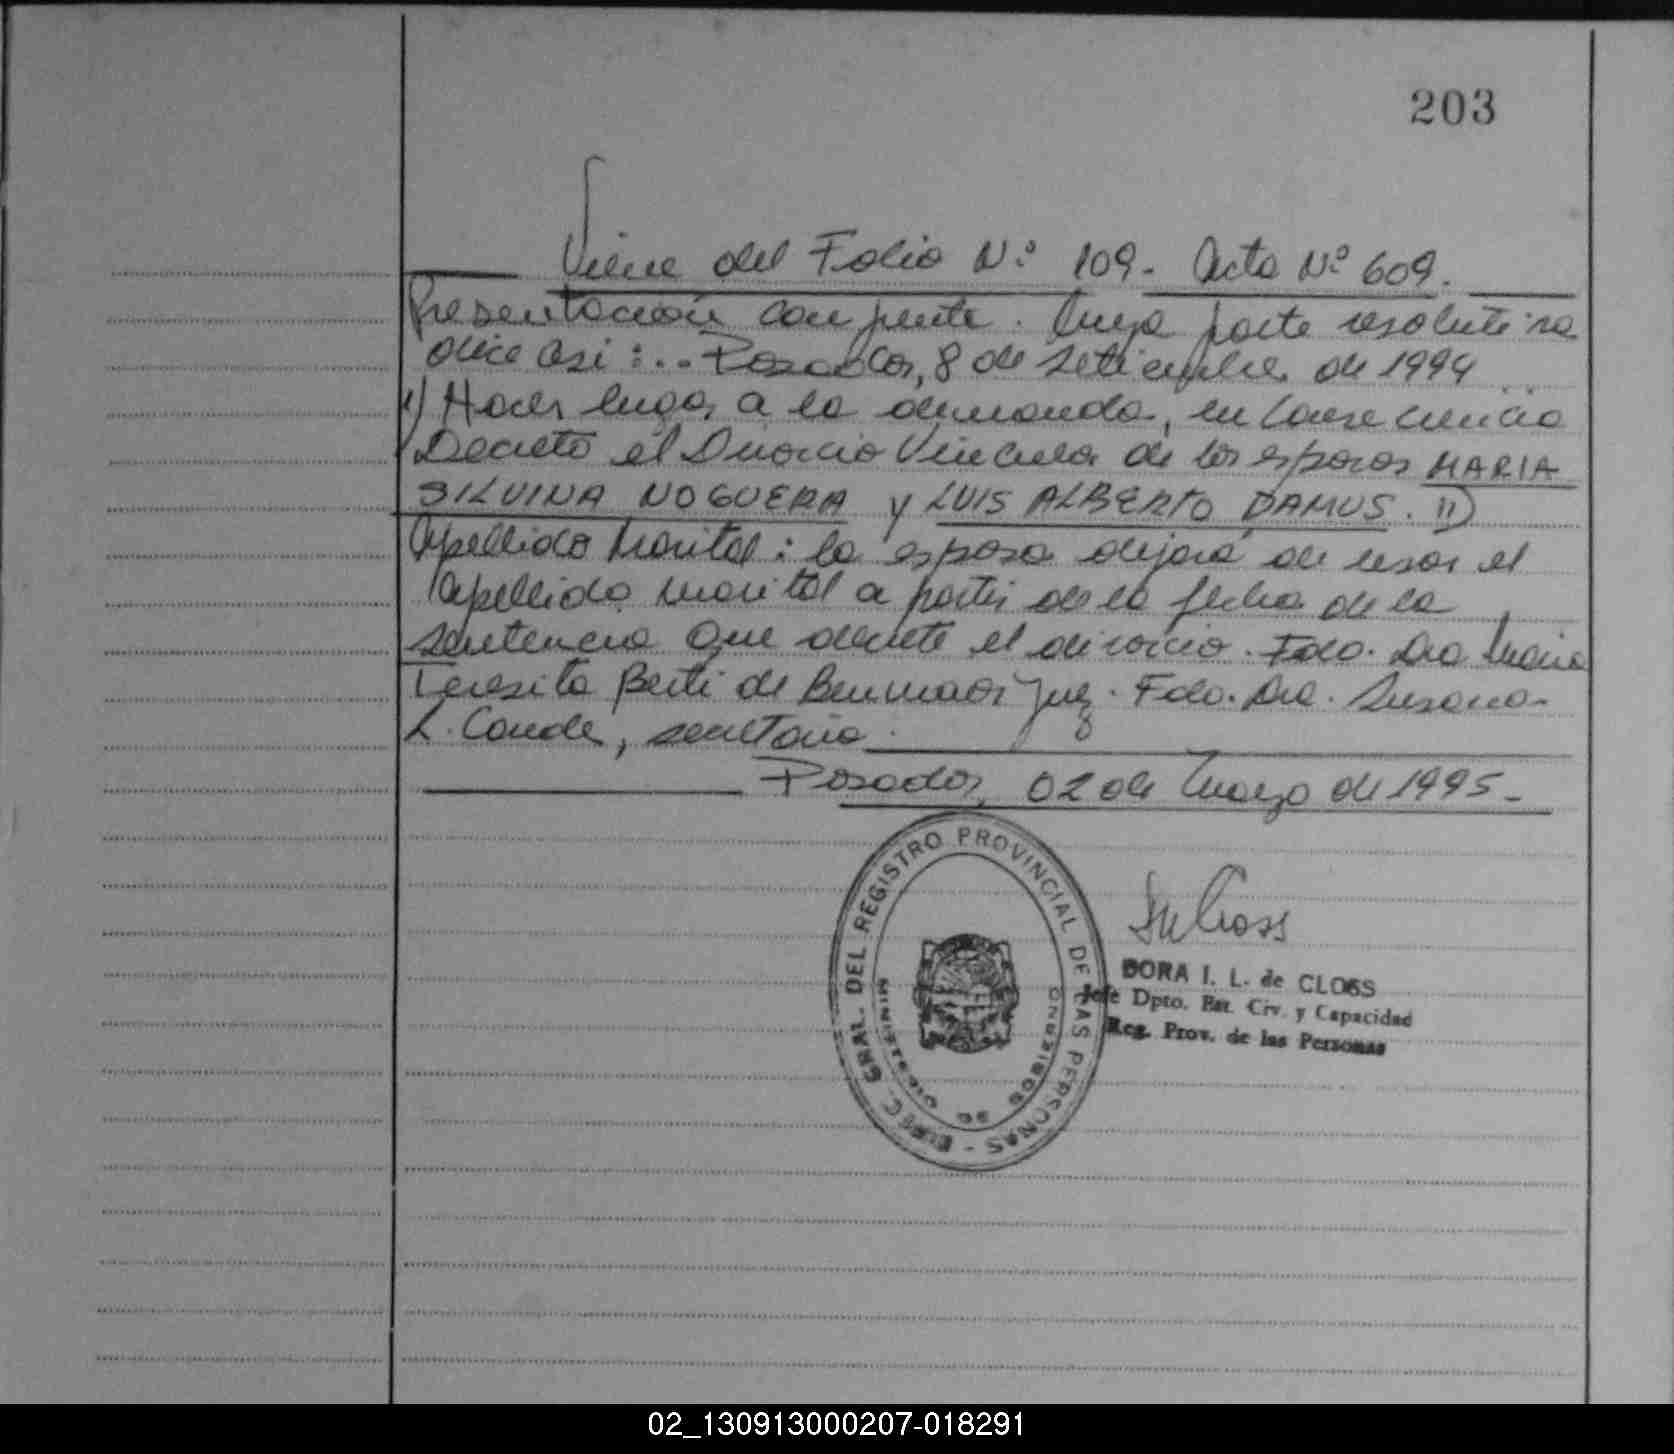 203
Viene del Folio N° 109. Acta N° 609.
Presentación conjunta. Cuya parte resolutiva
dice así:... Posadas, 8 de setiembre de 1994 ..
I) Hacer lugar a la demanda, en consecuencia
Decreto el Divorcio Vincular de los esposos MARIA
SILVINA NOGUERA y LUIS ALBERTO DAMUS. II)
Apellido Marital: la esposa dejará de usar el
apellido marital a partir de la fecha de la
sentencia que decrete el divorcio. Fdo. Dra María
Teresita Berti de Benmaor Juez. Fdo. Dra. Susana
L. Conde, secretaria.
Posadas, 02 de Marzo de 1995.-
DIREC. GRAL. DEL REGISTRO PROVINCIAL DE LAS PERSONAS -
MINISTERIO DE GOBIERNO
DORA I. L. de CLOSS
Jefe Dpto. Est. Civ. y Capacidad
Reg. Prov. de las Personas
02_130913000207-018291